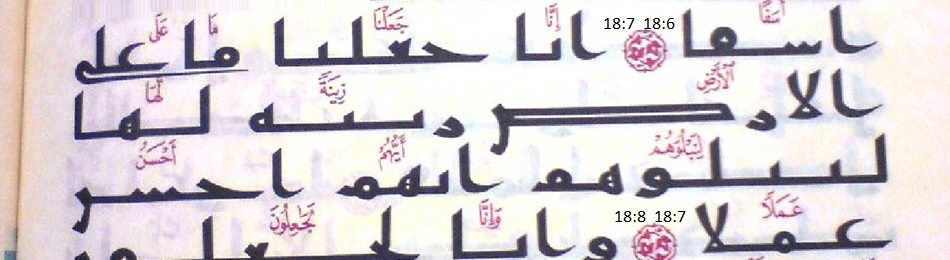 اسفا 18:7 18:6 انا جعلنا ما على
أَسَفًا إِنَّا جَعَلْنَا مَا عَلَى
الارض زينه لها
ٱلْأَرْضِ زِينَةً لَّهَا
لنبلوهم ايهم احسن
لِنَبْلُوَهُمْ أَيُّهُمْ أَحْسَنُ
عملا 18:8 18:7 وانا لجعلون
عَمَلًا وَإِنَّا لَجَٰعِلُونَ